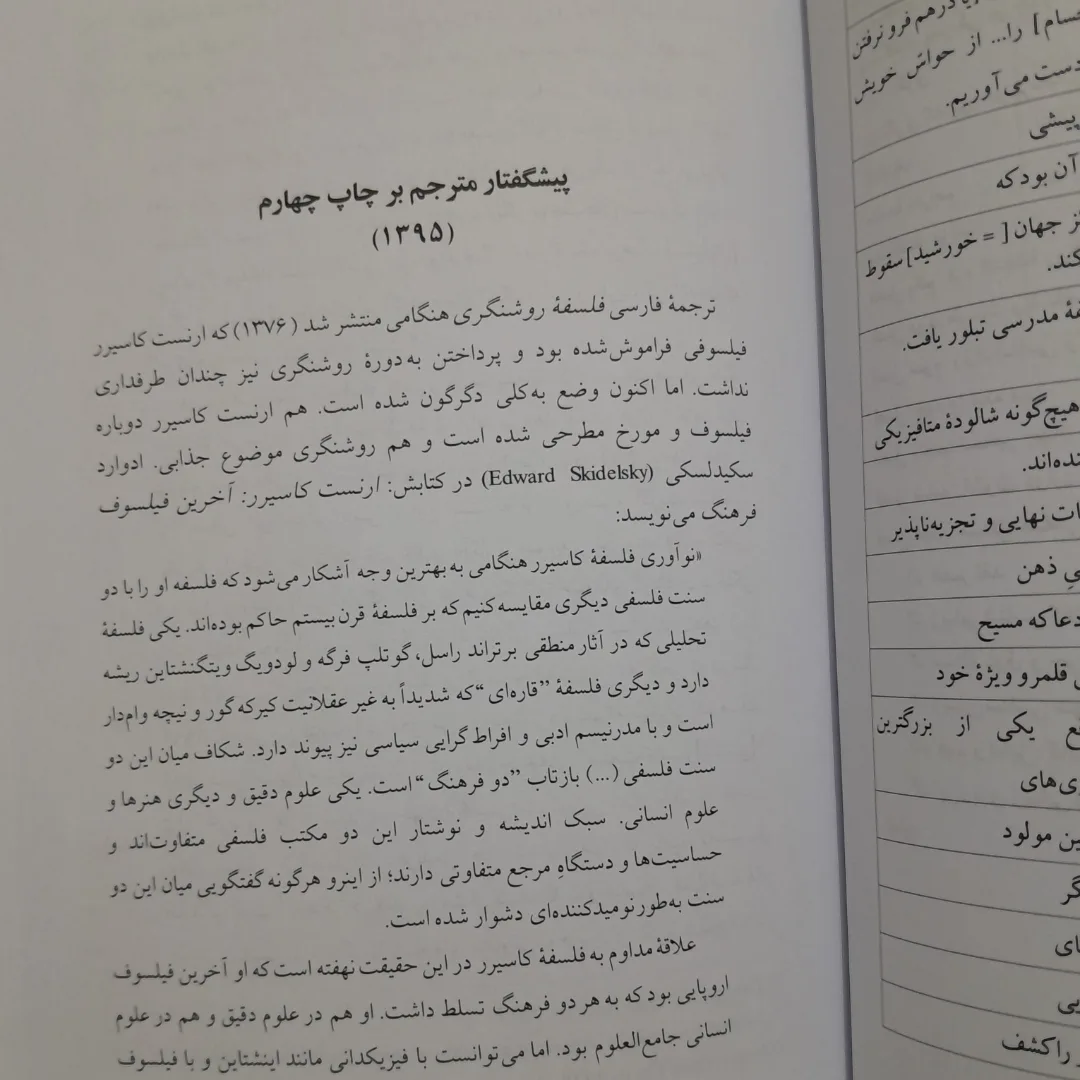 پیشگفتار مترجم بر چاپ چهارم
(۱۳۹۵)
ترجمهٔ فارسی فلسفهٔ روشنگری هنگامی منتشر شد (۱۳۷۶) که ارنست کاسیرر
فیلسوفی فراموش‌شده بود و پرداختن به دورهٔ روشنگری نیز چندان طرفداری
نداشت. اما اکنون وضع به‌کلی دگرگون شده است. هم ارنست کاسیرر دوباره
فیلسوف و مورخ مطرحی شده است و هم روشنگری موضوع جذابی. ادوارد
سکیدلسکی (Edward Skidelsky) در کتابش: ارنست کاسیرر: آخرین فیلسوف
فرهنگ می‌نویسد:
«نوآوری فلسفهٔ کاسیرر هنگامی به بهترین وجه آشکار می‌شود که فلسفه او را با دو
سنت فلسفی دیگری مقایسه کنیم که بر فلسفهٔ قرن بیستم حاکم بوده‌اند. یکی فلسفهٔ
تحلیلی که در آثار منطقی برتراند راسل، گوتلپ فرگه و لودویگ ویتگنشتاین ریشه
دارد و دیگری فلسفهٔ ”قاره‌ای“ که شدیداً به غیر عقلانیت کیرکه گور و نیچه وام‌دار
است و با مدرنیسم ادبی و افراط گرایی سیاسی نیز پیوند دارد. شکاف میان این دو
سنت فلسفی (...) بازتاب ”دو فرهنگ“ است. یکی علوم دقیق و دیگری هنرها و
علوم انسانی. سبک اندیشه و نوشتار این دو مکتب فلسفی متفاوت‌اند و
حساسیت‌ها و دستگاهِ مرجع متفاوتی دارند؛ از اینرو هرگونه گفتگویی میان این دو
سنت به‌طور نومیدکننده‌ای دشوار شده است.
علاقهٔ مداوم به فلسفهٔ کاسیرر در این حقیقت نهفته است که او آخرین فیلسوف
اروپایی بود که به هر دو فرهنگ تسلط داشت. او هم در علوم دقیق و هم در علوم
انسانی جامع‌العلوم بود. اما می‌توانست با فیزیکدانی مانند اینشتاین و با فیلسوف
درهم فرو نرفتن
را... از حواسّ خویش
دست می‌آوریم.
پیشی
آن بود که
جهان [= خورشید] سقوط
کند.
مدرسی تبلور یافت.
هیچ‌گونه شالودهٔ متافیزیکی
نهایی و تجزیه‌ناپذیر
ذهن
که مسیح
قلمرو ویژهٔ خود
یکی از بزرگترین
مولود
را کشف